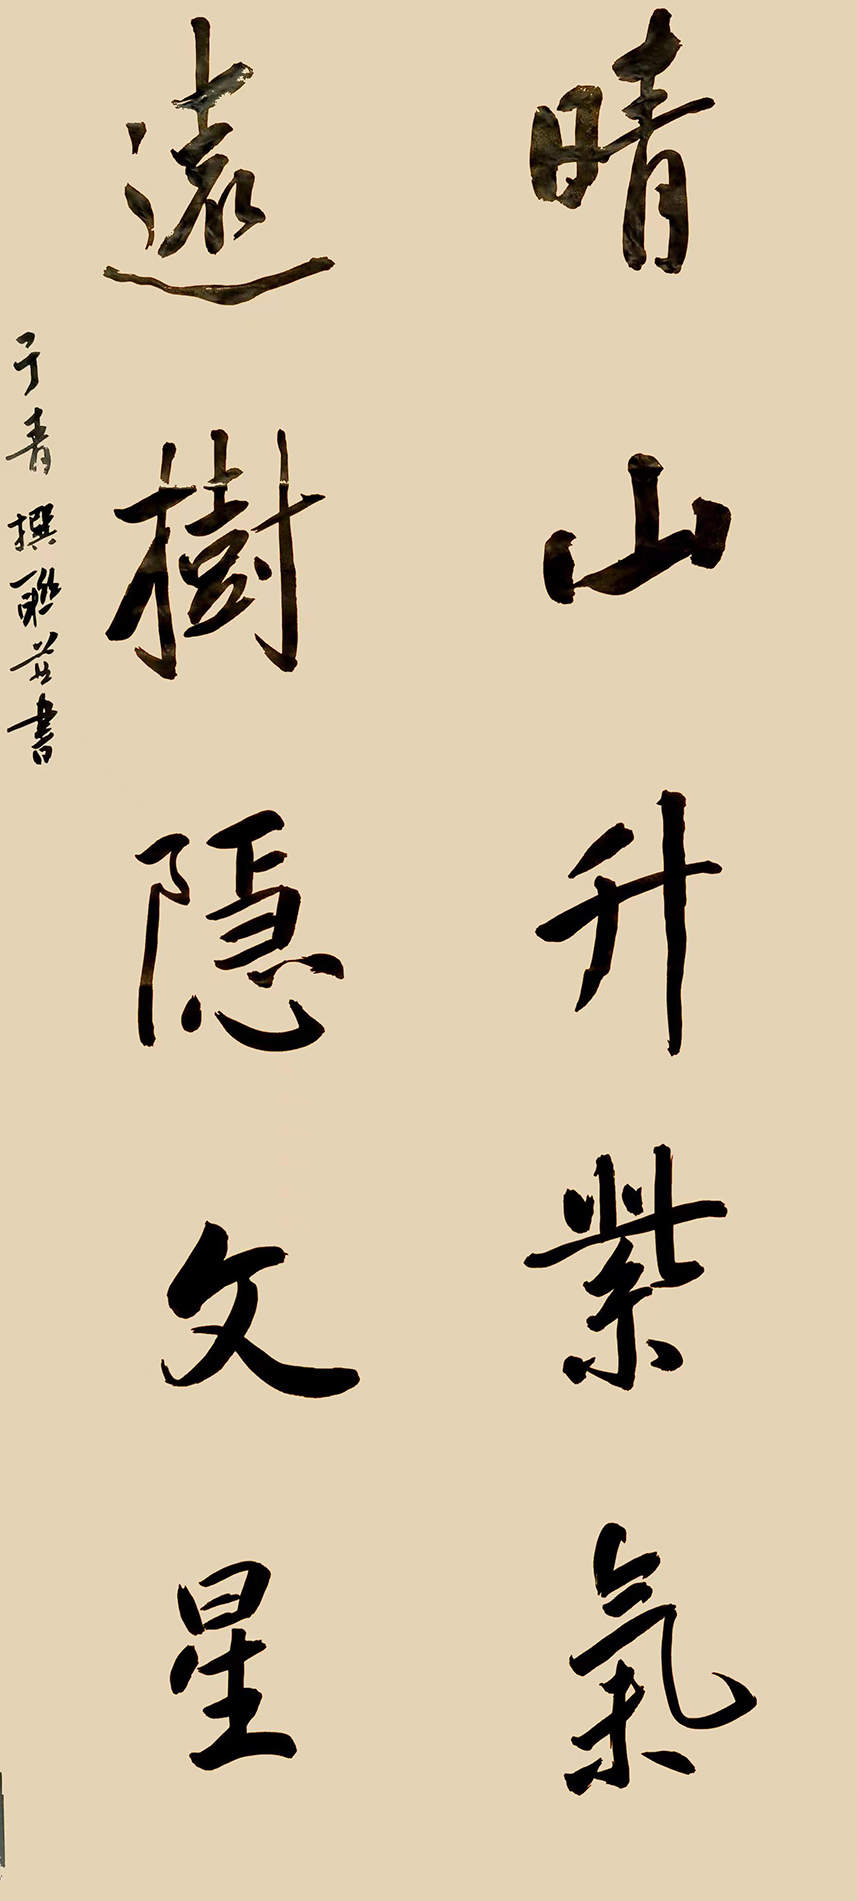 晴山升紫氣
遠樹隱文星
于青撰聯并書